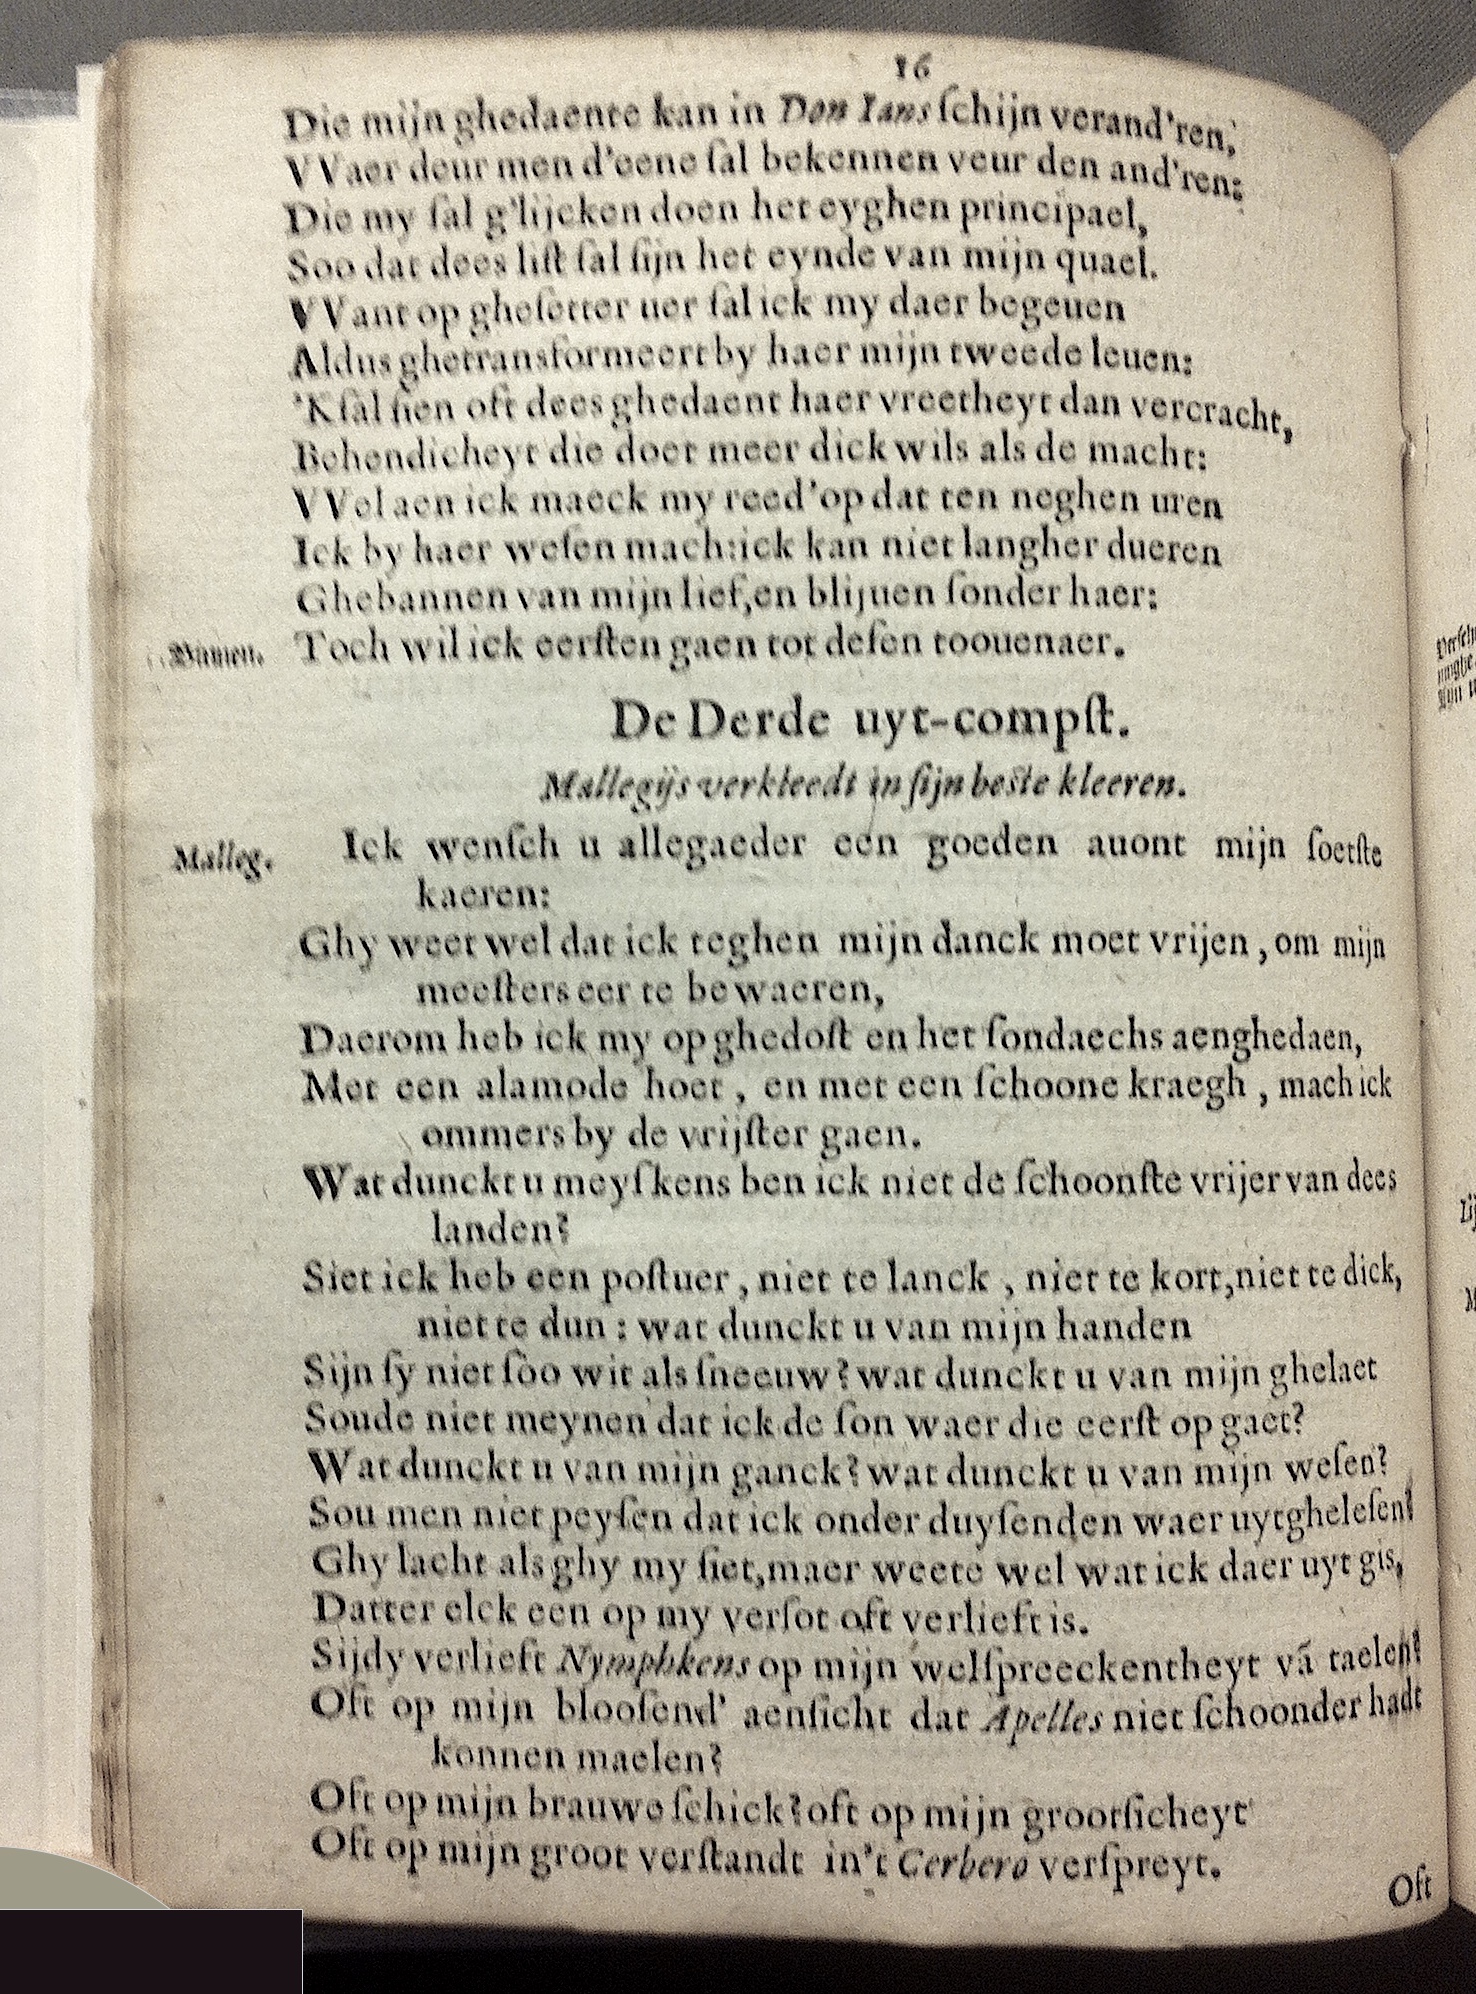 16
Die mijn ghedaente kan in Don Ians ſchijn verand'ren,
VVaer deur men d'eene ſal bekennen veur den and'ren:
Die my ſal g'lijcken doen het eyghen principael,
Soo dat dees liſt ſal ſijn het eynde van mijn quael.
VVant op gheſetter uer ſal ick my daer begeuen
Aldus ghetransformeert by haer mijn tweede leuen:
'K ſal ſien oft dees ghedaent haer vreetheyt dan vercracht,
Behendicheyt die doet meer dickwils als de macht:
VVel aen ick maeck my reed' op dat ten neghen uren
Ick by haer weſen mach: ick kan niet langher dueren
Ghebannen van mijn lief, en blijuen ſonder haer:
Binnen. Toch wil ick eerſten gaen tot deſen toouenaer.
De Derde uyt-compſt.
Mallegijs verkleedt in ſijn beste kleeren.
Malleg. Ick wenſch u allegaeder een goeden auont mijn ſoetſte
kaeren:
Ghy weet wel dat ick teghen mijn danck moet vrijen, om mijn
meeſters eer te bewaeren,
Daerom heb ick my op ghedoſt en het ſondaechs aenghedaen,
Met een alamode hoet, en met een ſchoone kraegh, mach ick
ommers by de vrijſter gaen.
Wat dunckt u meyſkens ben ick niet de ſchoonſte vrijer van dees
landen?
Siet ick heb een poſtuer, niet te lanck, niet te kort, niet te dick,
niet te dun: wat dunckt u van mijn handen
Sijn ſy niet ſoo wit als ſneeuw? wat dunckt u van mijn ghelaet
Soude niet meynen dat ick de ſon waer die eerſt op gaet?
Wat dunckt u van mijn ganck? wat dunckt u van mijn weſen?
Sou men niet peyſen dat ick onder duyſenden waer uytgheleſen?
Ghy lacht als ghy my ſiet, maer weete wel wat ick daer uyt gis,
Datter elck een op my verſot oft verlieft is.
Sijdy verlieft Nymphkens op mijn welſpreeckentheyt vã taelen?
Oft op mijn blooſend' aenſicht dat Apelles niet ſchoonder hadt
konnen maelen?
Oft op mijn brauwe ſchick? oft op mijn grootſicheyt
Oft op mijn groot verſtandt in't Cerbero verſpreyt.
Oft